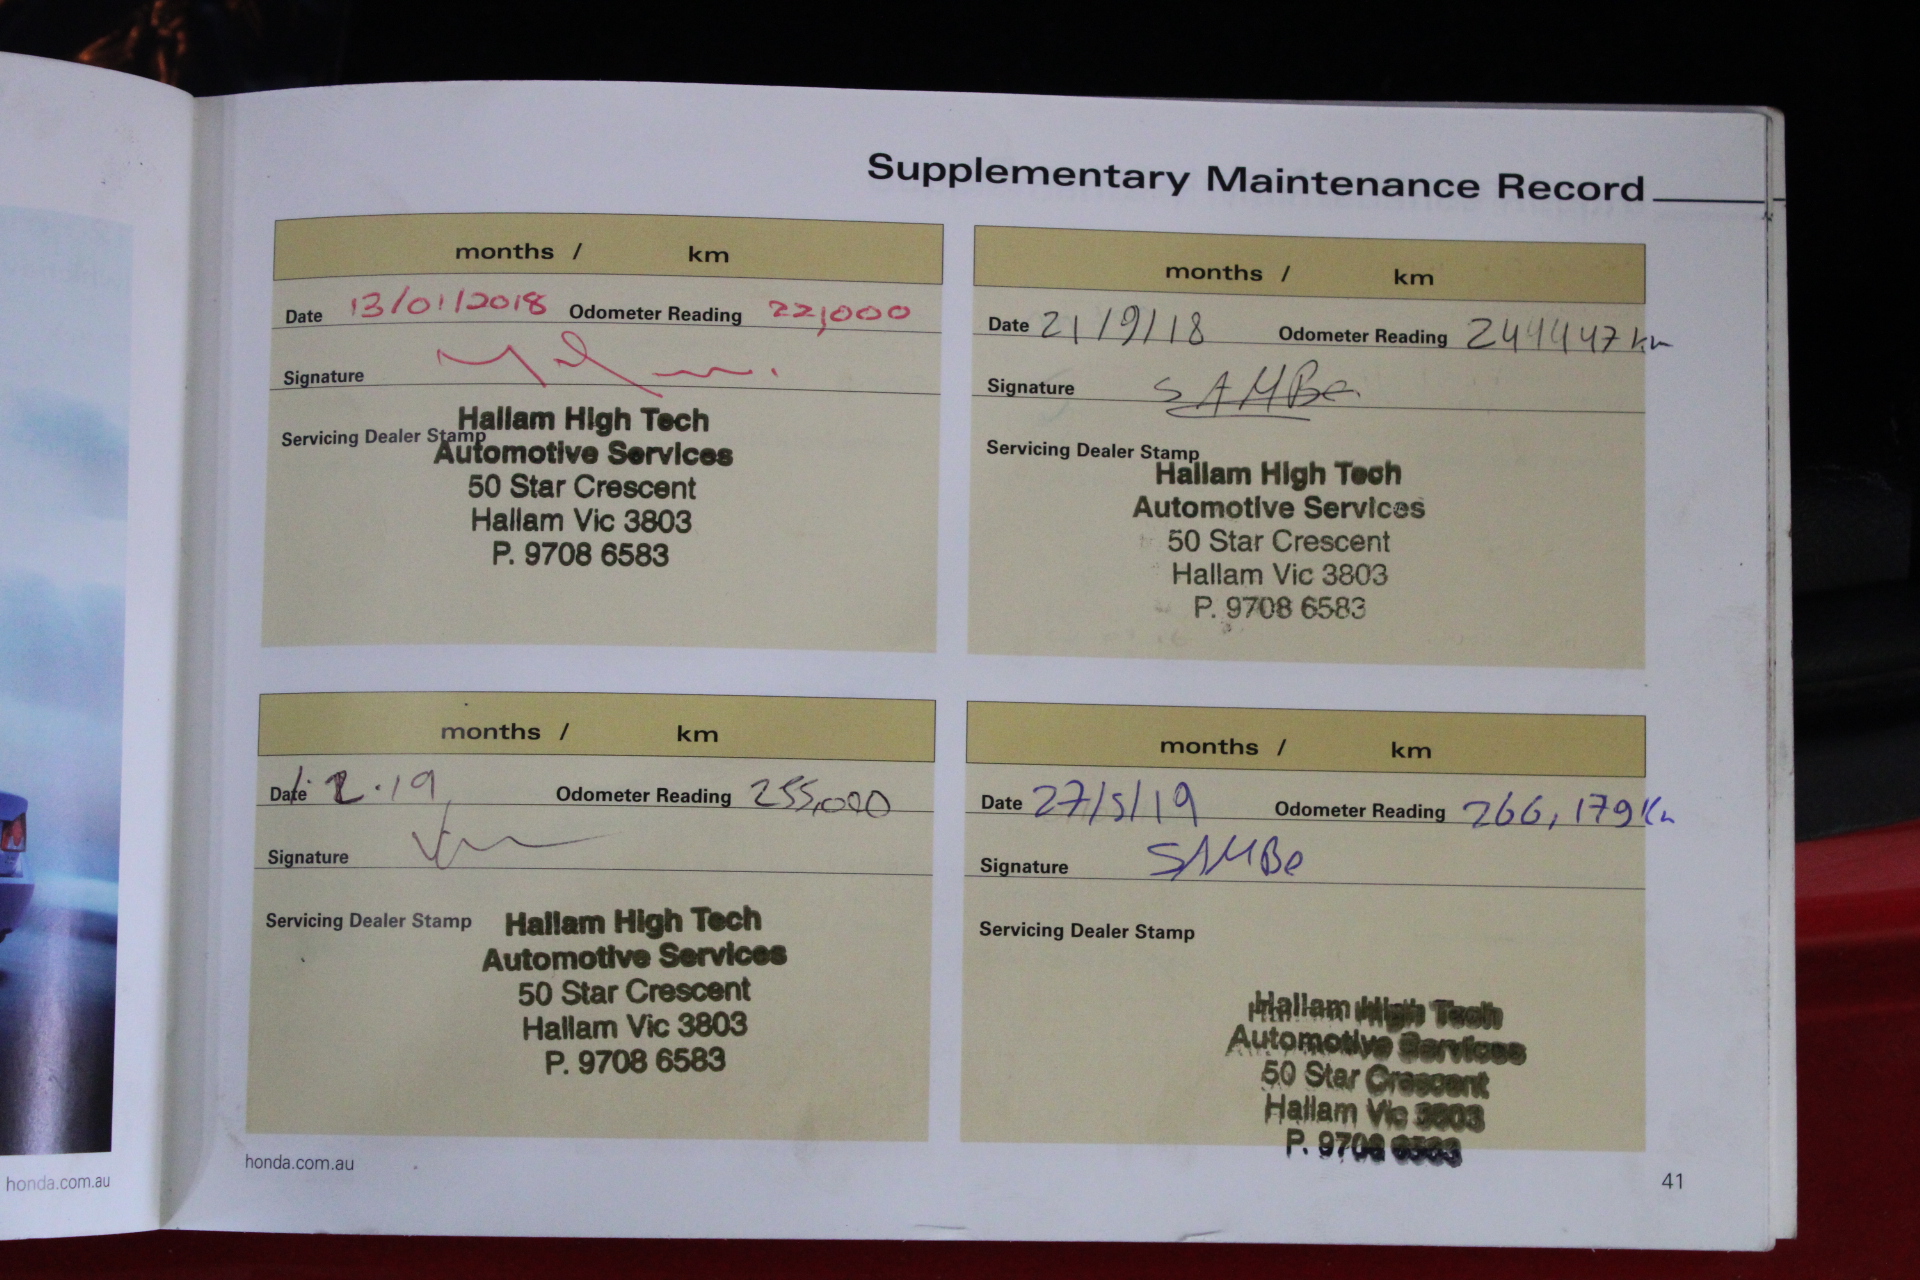 Supplementary Maintenance Record
months / km
Date 13/01/2018 Odometer Reading 22,000
Signature
Servicing Dealer Stamp
Hallam High Tech
Automotive Services
50 Star Crescent
Hallam Vic 3803
P. 9708 6583
months / km
Date 21/9/18 Odometer Reading 244447 km
Signature SAMBe
Servicing Dealer Stamp
Hallam High Tech
Automotive Services
50 Star Crescent
Hallam Vic 3803
P. 9708 6583
months / km
Date 1.2.19 Odometer Reading 255,000
Signature
Servicing Dealer Stamp
Hallam High Tech
Automotive Services
50 Star Crescent
Hallam Vic 3803
P. 9708 6583
months / km
Date 27/5/19 Odometer Reading 266,179 Km
Signature SAMBe
Servicing Dealer Stamp
Hallam High Tech
Automotive Services
50 Star Crescent
Hallam Vic 3803
P. 9708 6583
honda.com.au
honda.com.au
41